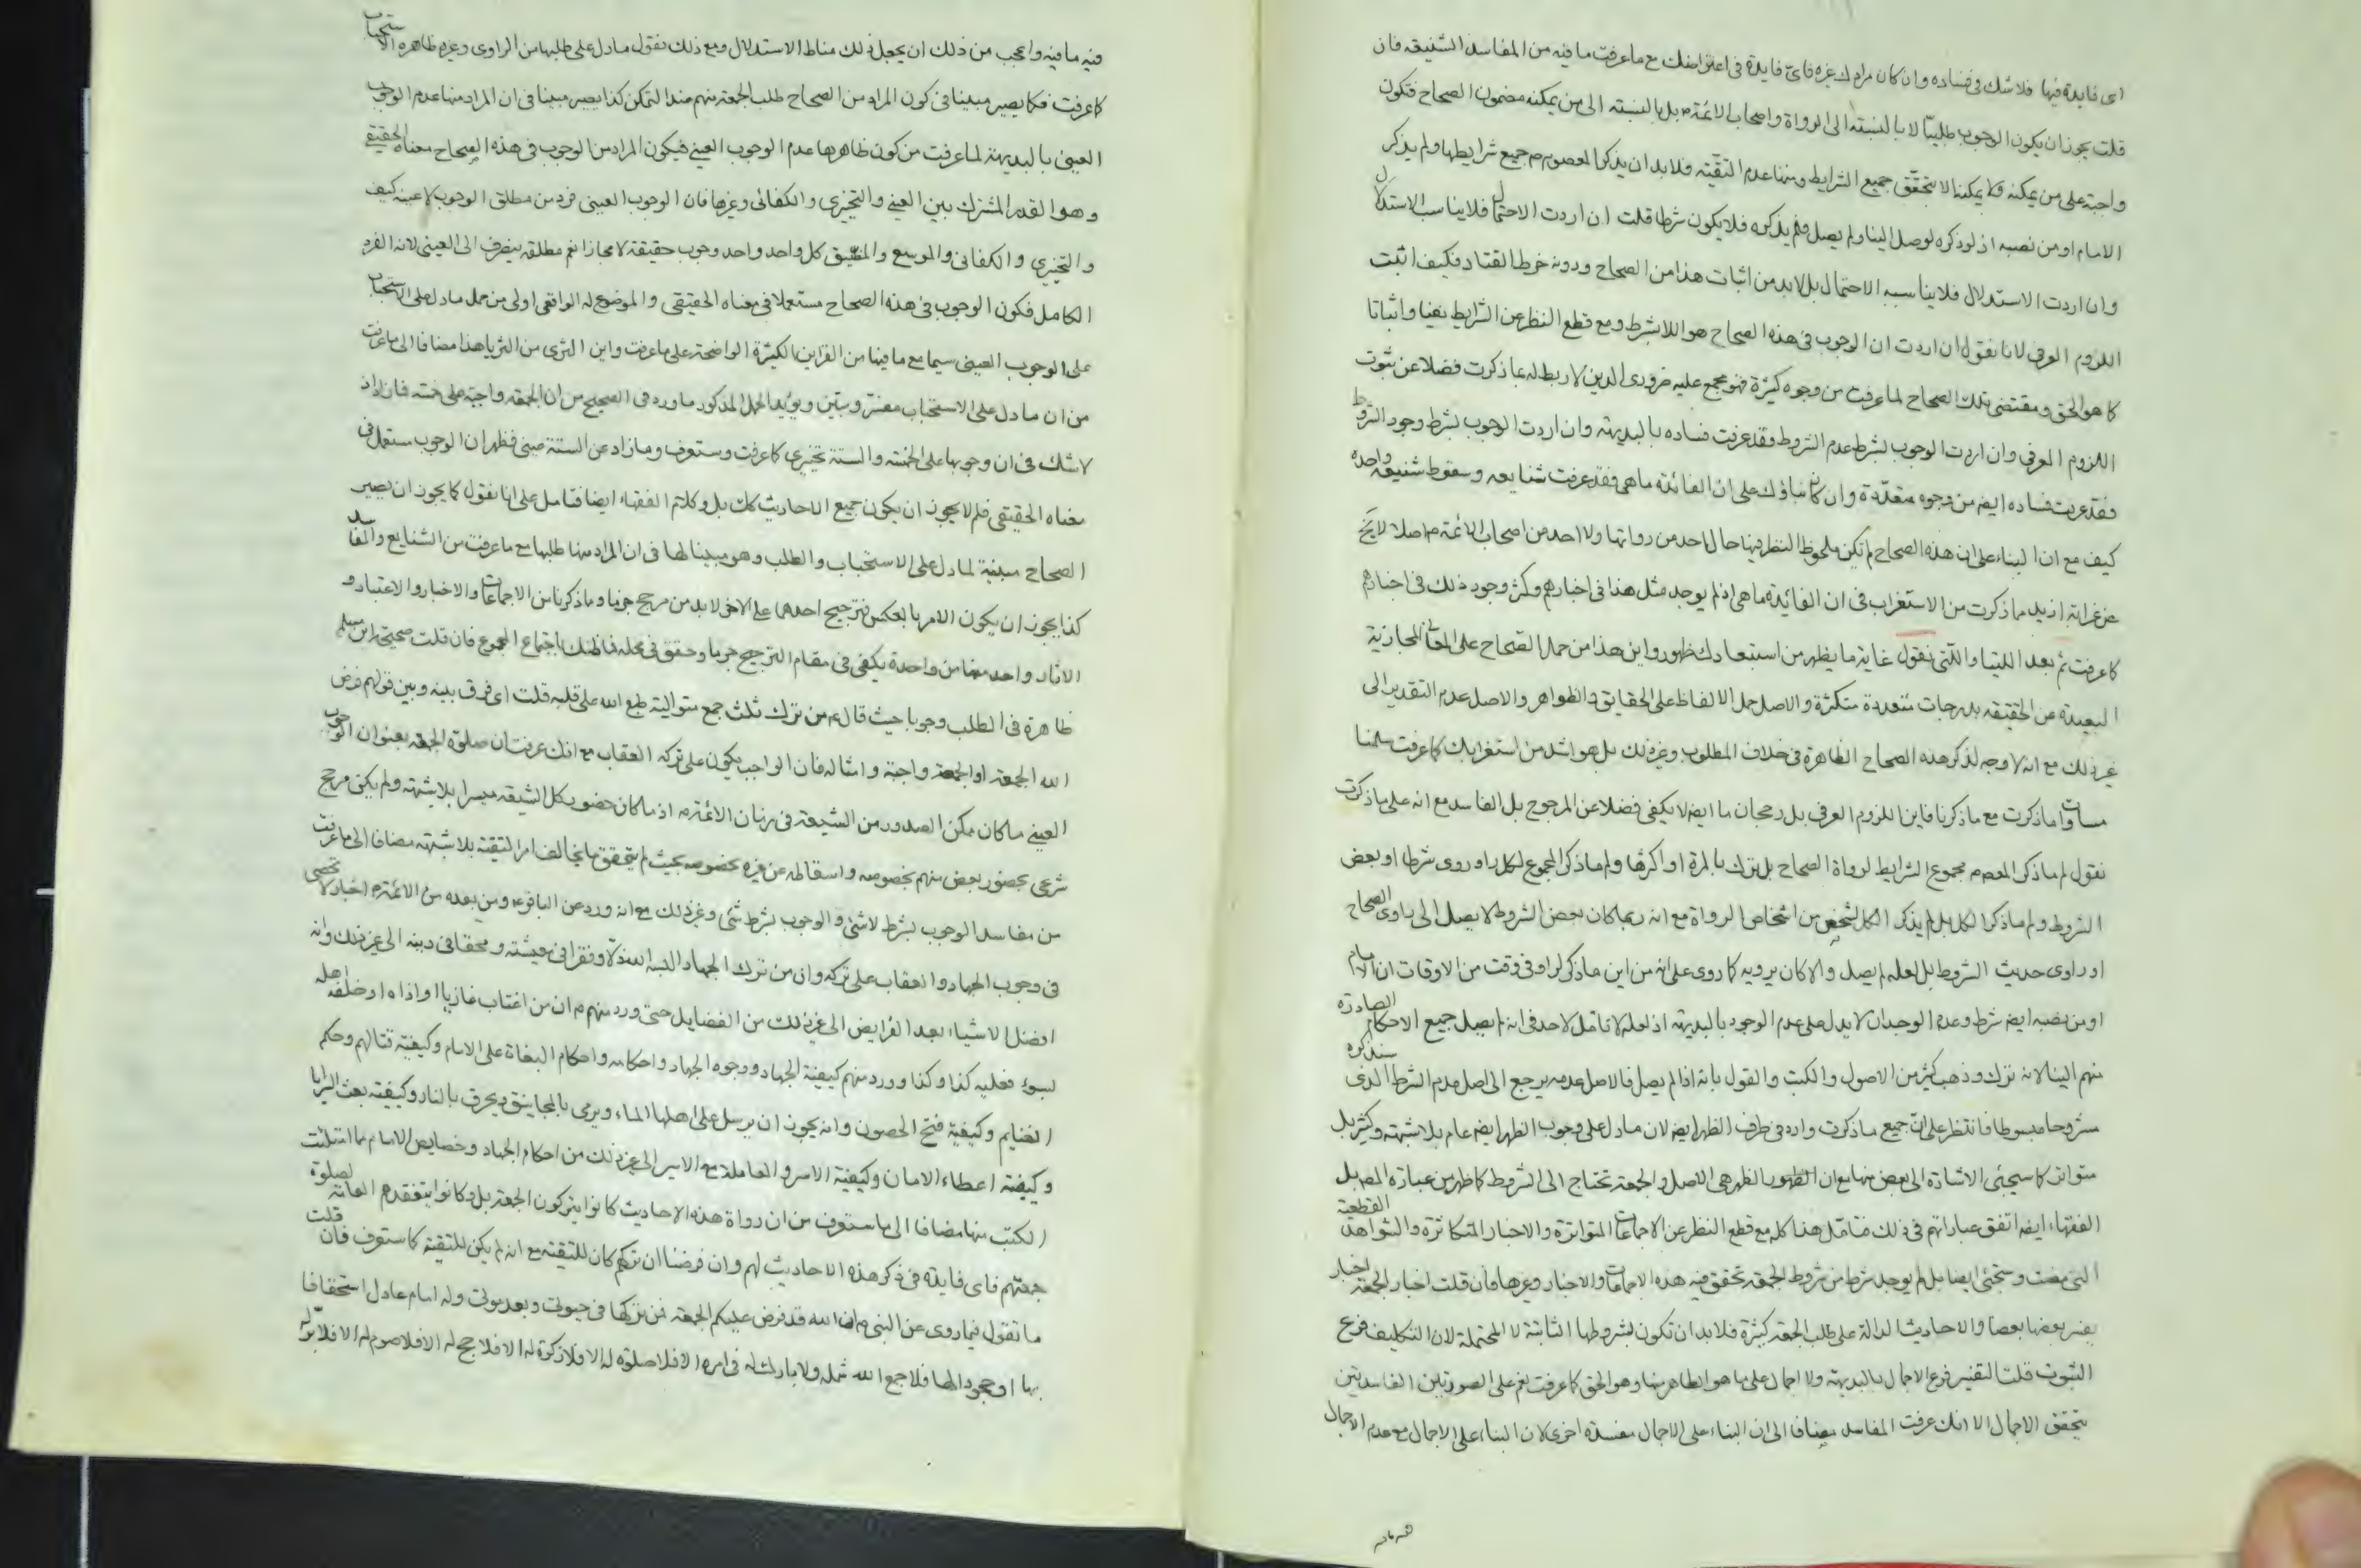 اى فايدة فيها فلا شك فى فساده وان كان مرادك غيره فاىّ فايدة فى اعتراضك مع ما عرفت ما فيه من المفاسد الشنيعة فان
قلت يجوز ان يكون الوجوب طلبيّا لا بالنسبته الى الرواة واصحاب الائمة م بل بالنسبته الى من يمكنه مضمون الصحاح فتكون
واجبة على من يمكنه ولا يمكنه الا بتحقّق جميع الشرايط ومنها عدم التقيّه فلا بد ان يذكر المعصوم م جميع شرايطها ولم يذكر
الامام او من نصبه اذ لو ذكره لوصل الينا ولم يصل فلم يذكره فلا يكون شرطا قلت ان اردت الاحتمال فلا يناسب الاستدلال
وان اردت الاستدلال فلا يناسبه الاحتمال بل لا بد من اثبات هذا من الصحاح ودونه خرط القتاد فكيف اثبت
اللزوم العرفى لانا نقول ان اردت ان الوجوب فى هذه الصحاح هو اللابشرط ومع قطع النظر عن الشرايط نفيا واثباتا
كما هو الحق ومقتضى تلك الصحاح لما عرفت من وجوه كثيرة فهو مجمع عليه ضرورى الدين لا ربط له بما ذكرت فضلا عن ثبوت
اللزوم العرفى وان اردت الوجوب بشرط عدم الشروط فقد عرفت فساده بالبديهته وان اردت الوجوب بشرط وجود الشروط
فقد عرفت فساده ايضه من وجوه متعدّدة وان كان بناؤك على ان الفائدة ما هى فقد عرفت شنايعه وسقوط شنيعة واحده
كيف مع ان البناء على ان هذه الصحاح لم تكن ملحوظ النظر فيها حال احد من رواتها ولا احد من اصحاب الائمة م اصلا لا يخ
عن غرابته ازيد مما ذكرت من الاستغراب فى ان الفائدة ما هى اذ لم يوجد مثل هذا فى اخبارهم وكثر وجود ذلك فى اخبارهم
كما عرفت ثم بعد اللتيا واللّتى نقول غاية ما يظهر من استبعادك ظهور واين هذا من حمل الصحاح على المعانى المجازية
البعيدة عن الحقيقه بدرجات متعددة متكثرة والاصل حمل الالفاظ على الحقايق والظواهر والاصل عدم التقدير الى
غير ذلك مع انه لا وجه لذكر هذه الصحاح الظاهرة فى خلاف المطلوب وغير ذلك بل هو اشد من استغرابك كما عرفت سلمنا
مساوات ما ذكرت مع ما ذكرنا فاين اللزوم العرفى بل رجحان ما ايضه لا يكفى فضلا عن المرجوح بل الفاسد مع انه على ما ذكرت
نقول لم ما ذكر المعصوم م مجموع الشرايط لرواة الصحاح بل ترك بالمرة او اكثرها ولم ما ذكر المجموع لكل راو روى شرطا او بعض
الشروط ولم ما ذكر الكل بل لم يذكر الكل لشخص من اشخاص الرواة مع انه ربما كان بعض الشروط لا يصل الى راوى الصحاح
او راوى حديث الشروط بل لعله لم يصل والا كان يرويه كما روى على انه من اين ما ذكر لراو فى وقت من الاوقات ان الامام
او من نصبه ايضه شرط وعدم الوجدان لا يدل على عدم الوجود بالبديهته اذ لعله لا تامل لاحد فى انه لم يصل جميع الاحكام الصادرة
منهم الينا لانه ترك وذهب كثير من الاصول والكتب والقول بانه اذا لم يصل فالاصل عدمه يرجع الى اصل عدم الشرط الذى سنذكره
مشروحا مبسوطا فانتظر على انّ جميع ما ذكرت وارد فى طرف الظهر ايضه لان ما دل على وجوب الظهر ايضه عام بلا شبهته وكثير بل
متواتر كما سيجئى الاشارة الى بعض منها مع ان الظهر هى الاصل والجمعة تحتاج الى الشروط كما ظهر من عبارة المص بل
الفقهاء ايضه اتفق عباراتهم فى ذلك فتامل هذا كله مع قطع النظر عن الاجماعات المتواترة والاخبار المتكاثرة والشواهد القطعية
التى مضت وستجئى ايضا بل لم يوجد شرط من شروط الجمعة تحقق فيه هذه الاجماعات والاخبار وغيرها فان قلت اخبار الجمعة اخبار
يفسر بعضها بعضا والاحاديث الدالة على طلب الجمعة كثيرة فلا بد ان تكون بشروطها الثابتة لا المحتملة لان التكليف فرع
الثبوت قلت التفسير فرع الاجمال بالبديهته ولا اجمال على ما هو الظاهر منها وهو الحق كما عرفت نعم على الصورتين الفاسدتين
يتحقق الاجمال الا انك عرفت المفاسد مضافا الى ان البناء على الاجمال مفسدة اخرى لان البناء على الاجمال مع عدم الاجمال
فيه ما فيه واعجب من ذلك ان يجعل ذلك مناط الاستدلال ومع ذلك نقول ما دل على طلبها من الراوى وغيره ظاهره الاستحباب
كما عرفت فكما يصير مبينا فى كون المراد من الصحاح طلب الجمعة منهم عند التمكن كذا يصير مبينا فى ان المراد منها عدم الوجوب
العينى بالبديهة لما عرفت من كون ظاهرها عدم الوجوب العينى فيكون المراد من الوجوب فى هذه الصحاح معناه الحقيقى
وهو القدر المشترك بين العينى والتخييرى والكفائى وغيرها فان الوجوب العينى فرد من مطلق الوجوب لا عينه كيف
والتخييرى والكفائى والموسع والمضيق كل واحد واحد وجوب حقيقة لا مجازا نعم مطلقه ينصرف الى العينى لانه الفرد
الكامل فكون الوجوب فى هذه الصحاح مستعملا فى معناه الحقيقى والموضوع له الواقعى اولى من حمل ما دل على الاستحباب
على الوجوب العينى سيما مع ما فيها من القراين الكثيرة الواضحة على ما عرفت واين الثرى من الثريا هذا مضافا الى ما عرفت
من ان ما دل على الاستحباب مفسر ومبيّن ويؤيد الحمل المذكور ما ورد فى الصحيح من ان الجمعة واجبة على خمسة فما زاد اذ
لا شك فى ان وجوبها على الخمسة والستة تخييرى كما عرفت وستعرف وما زاد عن الستة عينى فظهر ان الوجوب مستعمل فى
معناه الحقيقى فلم لا يجوز ان يكون جميع الاحاديث كك بل وكلام الفقهاء ايضا فتامل على انا نقول كما يجوز ان يصير
الصحاح مبينة لما دل على الاستحباب والطلب وهو مبينا لها فى ان المراد منها طلبها مع ما عرفت من الشنايع والمفاسد
كذا يجوز ان يكون الامر بالعكس فترجيح احدهما على الاخر لا بد من مرجح جزما وما ذكرنا من الاجماعات والاخبار والاعتبار و
الاثار واحد منها من واحدة يكفى فى مقام الترجيح جزما وحقق فى محله فما ظنك باجتماع المجموع فان قلت صحيحة ابن مسلم
ظاهرة فى الطلب وجوبا حيث قال م من ترك ثلث جمع متوالية طبع الله على قلبه قلت اى فرق بينه وبين قولهم فرض
الله الجمعة او الجمعة واجبة وامثاله فان الواجب يكون على تركه العقاب مع انك عرفت ان صلوة الجمعة بعنوان الوجوب
العينى ما كان ممكن الصدور من الشيعة فى زمان الائمة م اذ ما كان حضور كل الشيعة ميسرا بلا شبهته ولم يكن مرجح
شرعى بحضور بعض منهم بخصوصه واسقاطه عن غيره بخصوصه بحيث لم يتحقق ما يخالف امر التقية بلا شبهته مضافا الى ما عرفت
من مفاسد الوجوب بشرط لا شئ والوجوب بشرط شئ وغير ذلك مع انه ورد عن الباقر م ومن بعده من الائمة م اخبار لا تحصى
فى وجوب الجهاد والعقاب على تركه وان من ترك الجهاد البسه الله ذلّا وفقرا فى معيشته ومحقا فى دينه الى غير ذلك وانه
افضل الاشياء بعد الفرايض الى غير ذلك من الفضايل حتى ورد منهم م ان من اغتاب غازيا او اذاه او خلفه فى اهله
بسوء فعليه كذا وكذا وورد منهم كيفية الجهاد ووجوه الجهاد واحكامه واحكام البغاة على الامام وكيفية قتالهم وحكم
الغنايم وكيفية فتح الحصون وانه يجوز ان يرسل على اهلها الماء ويرمى بالمجانيق ويحرق بالنار وكيفية بعث السرايا
وكيفية اعطاء الامان وكيفية الاسر والمعاملة مع الاسير الى غير ذلك من احكام الجهاد وخصايص الامام مما امتلئت
الكتب منها مضافا الى ما ستعرف من ان رواة هذه الاحاديث كانوا يتركون الجمعة بل وكانوا يتفقدهم العامة لصلوة
جمعتهم فاى فايدة فى ذكر هذه الاحاديث لهم وان فرضنا ان تركهم كان للتقية مع انه لم يكن للتقية كما ستعرف فان قلت
ما تقول فيما روى عن النبى م ان الله قد فرض عليكم الجمعة فمن تركها فى حيوتى وبعد موتى وله امام عادل استخفافا
بها او جحودا لها فلا جمع الله شمله ولا بارك له فى امره الا فلا صلوة له الا فلا زكوة له الا فلا حج له الا فلا صوم له الا فلا برّ له